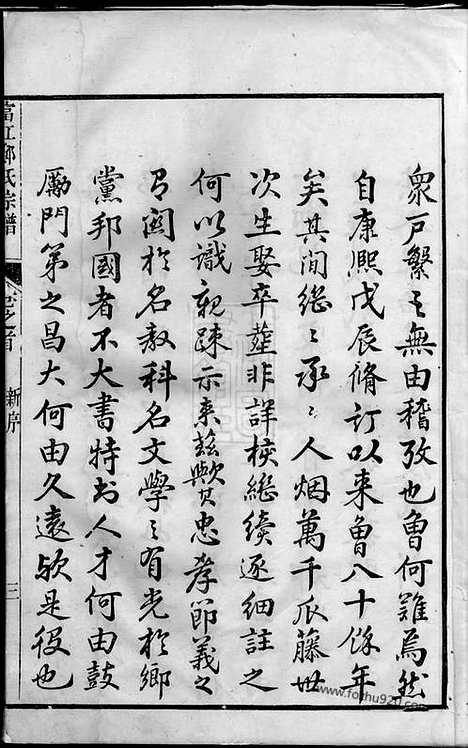 衆戸繁之無由稽攷也魯何難焉然
自康熙戊辰脩訂以来魯八十餘年
矣其间繼〻承〻人烟萬千瓜藤世
次生娶卒塟非詳核繼續逐细註之
何以識親疎示来兹歟其忠孝節義之
有関於名教科名文學〻有光於鄉
黨邦國者不大書特书人才何由鼓
勵門第之昌大何由久遠欤是役也
富江鄭氏宗譜
卷之首
新序
三
www.fozhu920.com